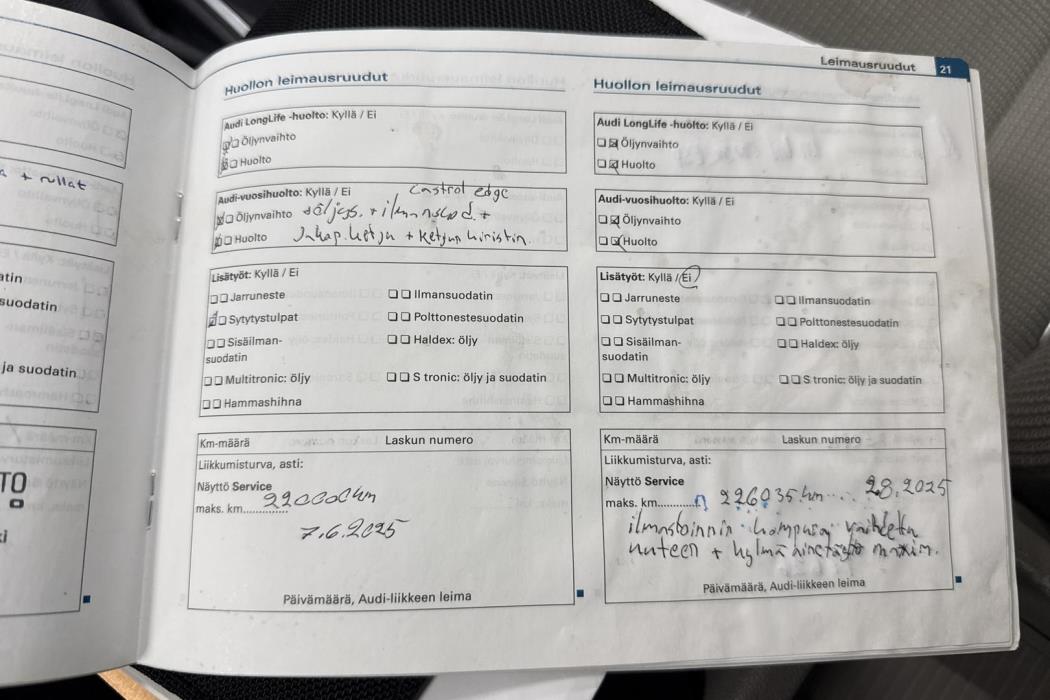 a + rullat
atin
suodatin
ja suodatin
TO
ki
Huollon leimausruudut
Audi LongLife -huolto: Kyllä / Ei
Öljynvaihto
Huolto
Audi-vuosihuolto: Kyllä / Ei Castrol edge
Öljynvaihto
Huolto
Lisätyöt: Kyllä / Ei
Jarruneste Ilmansuodatin
Sytytystulpat Polttonestesuodatin
Sisäilman- Haldex: öljy
suodatin
Multitronic: öljy S tronic: öljy ja suodatin
Hammashihna
Km-määrä Laskun numero
Liikkumisturva, asti:
Näyttö Service
maks. km.............. 220000km
7.6.2025
Päivämäärä, Audi-liikkeen leima
Leimausruudut 21
Huollon leimausruudut
Audi LongLife -huolto: Kyllä / Ei
Öljynvaihto
Huolto
Audi-vuosihuolto: Kyllä / Ei
Öljynvaihto
Huolto
Lisätyöt: Kyllä / Ei
Jarruneste Ilmansuodatin
Sytytystulpat Polttonestesuodatin
Sisäilman- Haldex: öljy
suodatin
Multitronic: öljy S tronic: öljy ja suodatin
Hammashihna
Km-määrä Laskun numero
Liikkumisturva, asti:
Näyttö Service
maks. km.............. 226035km 2.8.2025
ilmastoinnin vaihdettu
uuteen + kylmäainetäyttö maxim.
Päivämäärä, Audi-liikkeen leima